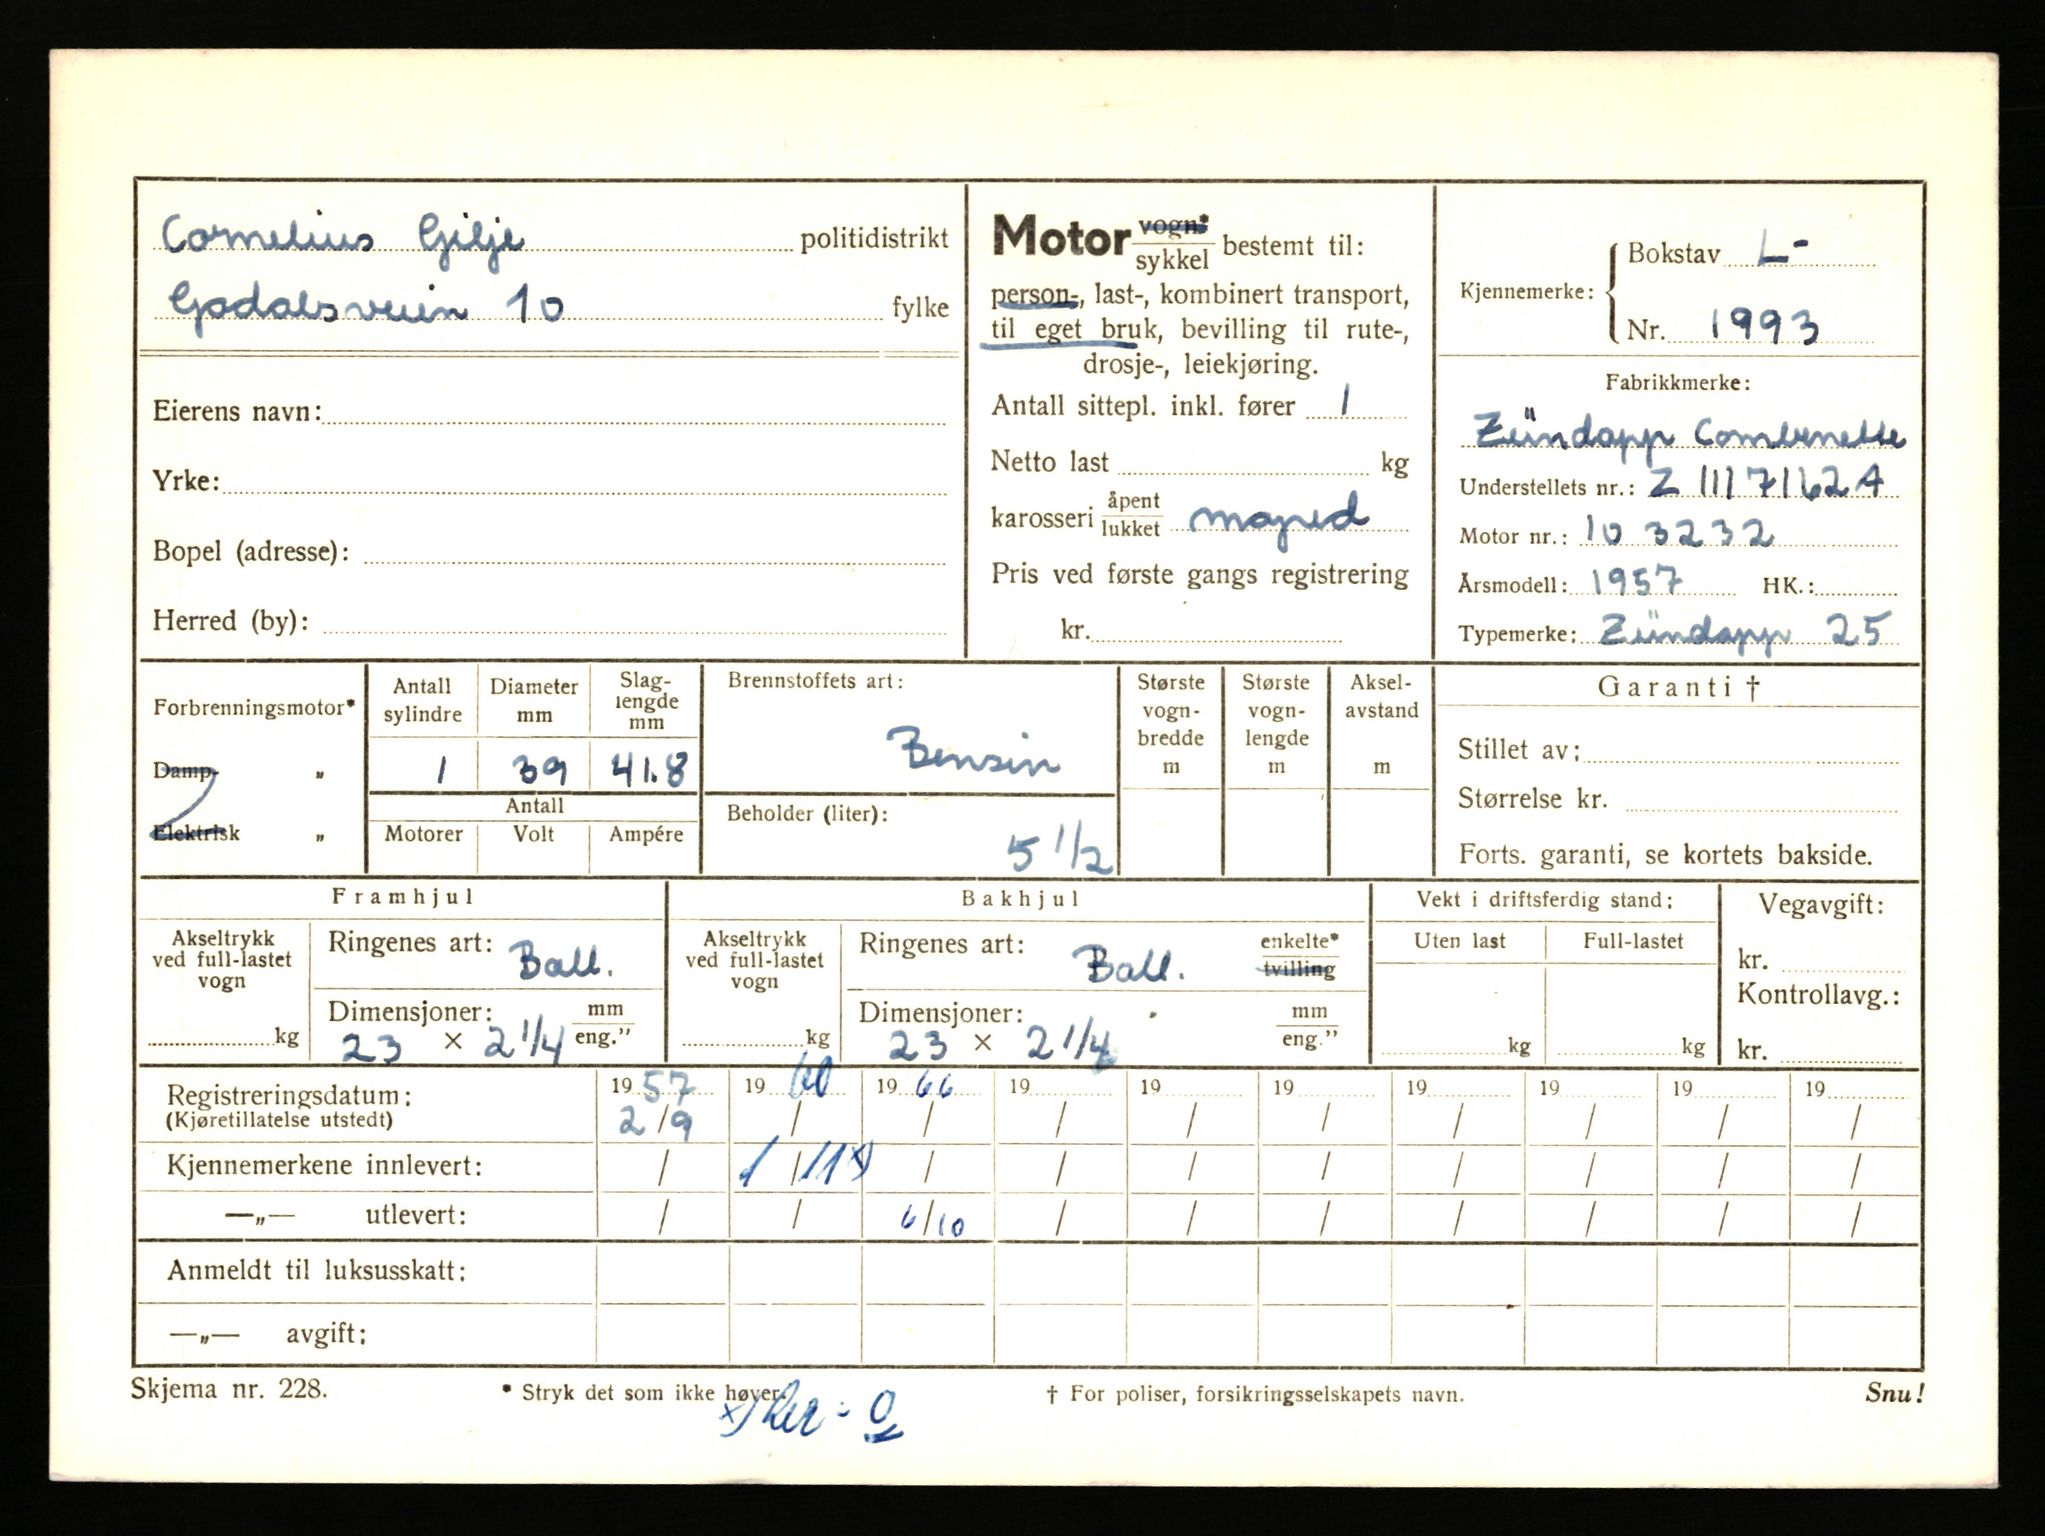 Cornelius Gilje politidistrikt
Godalsveien 10 fylke
Eierens navn:
Yrke:
Bopel (adresse):
Herred (by):
Motor vogn* sykkel bestemt til:
person-, last-, kombinert transport,
til eget bruk, bevilling til rute-,
drosje-, leiekjøring.
Antall sittepl. inkl. fører 1
Netto last kg
karosseri åpent lukket moped
Pris ved første gangs registrering
kr.
Kjennemerke: Bokstav L-
Nr. 1993
Fabrikkmerke:
Zündapp Combinette
Understellets nr.: Z 111 71624
Motor nr.: 10 3232
Årsmodell: 1957 HK.:
Typemerke: Zündapp 25
Forbrenningsmotor*
Damp- „
Elektrisk „
Antall sylindre Diameter mm Slag-lengde mm
1 39 41.8
Antall
Motorer Volt Ampére
Brennstoffets art:
Bensin
Beholder (liter):
5 1/2
Største vogn-bredde m
Største vogn-lengde m
Aksel-avstand m
Garanti †
Stillet av:
Størrelse kr.
Forts. garanti, se kortets bakside.
Framhjul
Akseltrykk ved full-lastet vogn
kg
Ringenes art: Ball.
Dimensjoner: mm
23 × 2 1/4 eng."
Bakhjul
Akseltrykk ved full-lastet vogn
kg
Ringenes art: Ball. enkelte* tvilling
Dimensjoner: mm
23 × 2 1/4 eng."
Vekt i driftsferdig stand:
Uten last Full-lastet
kg kg
Vegavgift:
kr.
Kontrollavg.:
kr.
Registreringsdatum: 1957 1960 1966 19 19 19 19 19 19 19
(Kjøretillatelse utstedt) 2/9 / / / / / / / / /
Kjennemerkene innlevert: / 1/11 x) / / / / / / / /
—„— utlevert: / / 6/10 / / / / / / /
Anmeldt til luksusskatt:
—„— avgift:
Skjema nr. 228. * Stryk det som ikke høver. † For poliser, forsikringsselskapets navn. Snu!
x) = 0